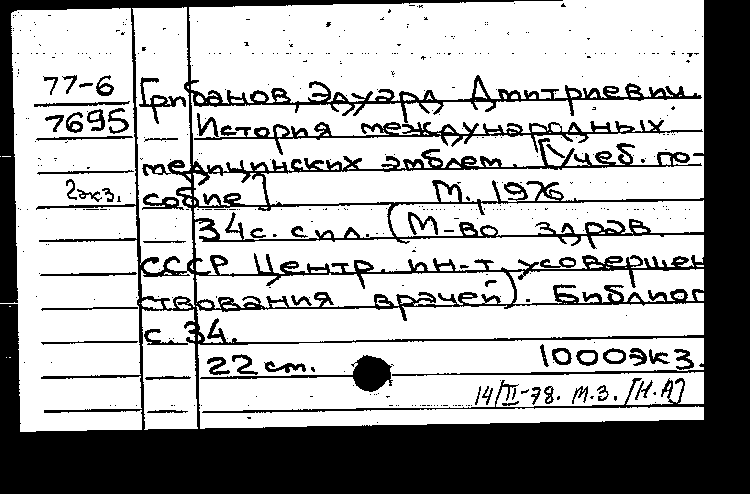 77-6 Грибанов, Эдуард Дмитриевич.
7695 История международных
медицинских эмблем. [Учеб. по-
2экз. собие]. М., 1976
34с. с ил. (М-во здрав.
СССР. Центр. ин-т усовершен
ствования врачей). Библиог
с. 34.
22 см. 1000экз.
14/II-78. М.З. [Н.А]